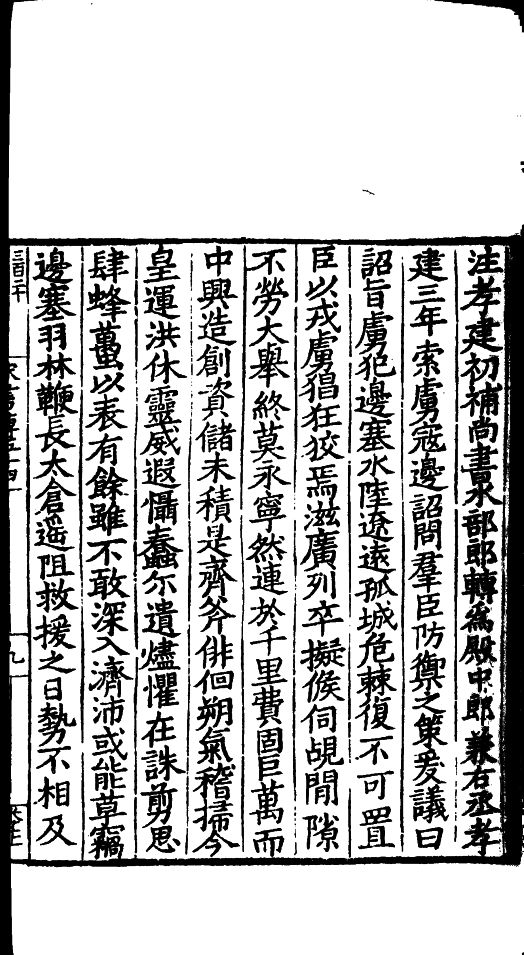 注孝建初補尚書水部郎轉爲殿中郎兼右丞孝
建三年索虜寇邊詔問羣臣防禦之策爰議曰
詔旨虜犯邊塞水陸遼遠孤城危棘復不可置
臣以戎虜猖狂狡焉滋廣列卒擬候伺覘間隙
不勞大舉終莫永寧然連於千里費固巨萬而
中興造創資儲未積是齊斧俳佪朔氣稽掃今
皇運洪休靈威遐懾蠢尒遺燼懼在誅剪思
肆蜂蠆以表有餘雖不敢深入濟沛或能草竊
邊塞羽林鞭長太倉遥阻救援之日勢不相及
三百二十
九